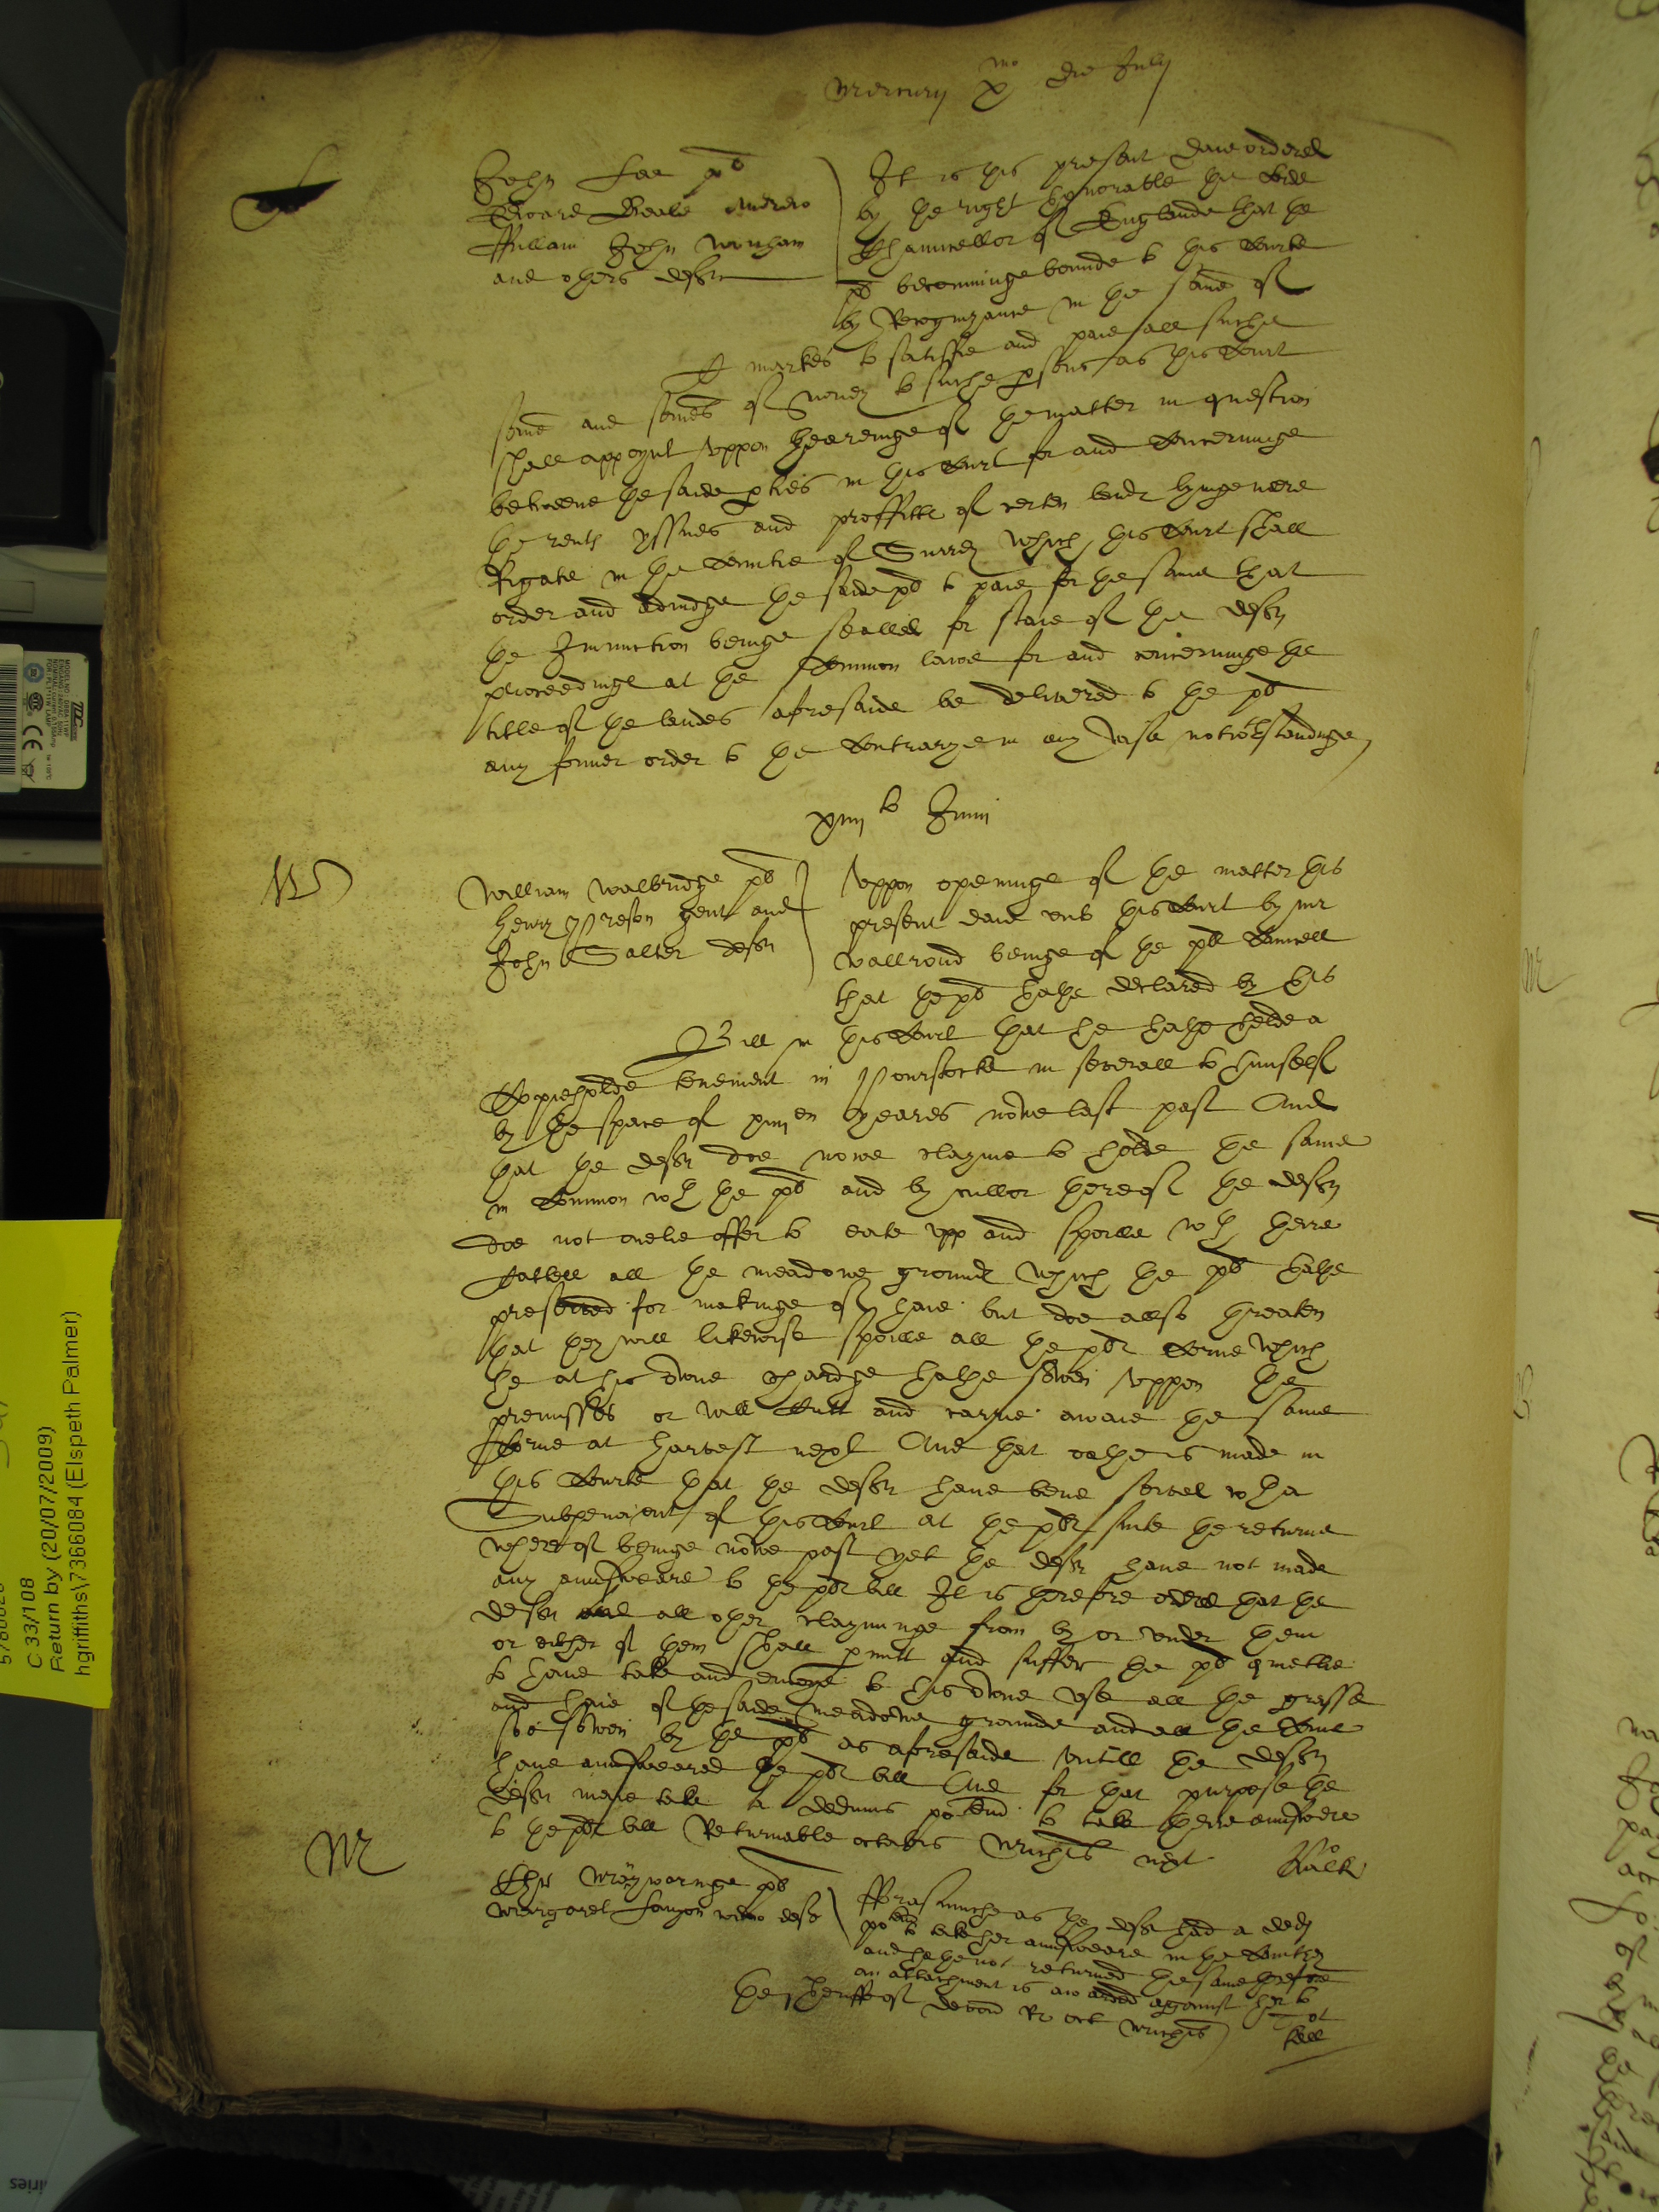 Mercurij x mo die Julij
L
John Lee pl
Edward Beale Andrew
ffullam John Wonham
and others defts
It is this present daie ordered
by the right honorable the Lord
Chauncellor of Englande that the
pl becomminge bounde to this Courte
by Recognizance in the some of
C markes to satisfie and paie all suche
some and somes of money to suche psons as this Court
shall appoynt vppon hearinge of the matter in question
betweene the saide pties in this Court for and concerninge
the rents yssues and proffitts of certen lands lyinge neere
Rigate in the Countie of Surrey which this Court shall
order and adiudge the saide pl to paie for the same that
the Iniunction beinge sealled for staie of the defts
proceedings at the Common lawe for and concerninge the
title of the landes aforesaide be delivered to the pl
any former order to the Contrarye in any wise notwthstandinge
xiiij to Junij
W
William Walbridge pl
Henry Preston gent and
John Salter defts
Vppon openinge of the matter this
present daie vnto this Court by mr
Wallrond beinge of the pls Councell
that the pl hathe declared by his
Bill in this Court that he hathe helde a
Copieholde tenement in Pourstocke in severall to himself
by the space of xiiij en yeares nowe last past And
that the defts doe nowe clayme to holde the same
in Common wth the pl and by cullor thereof the defts
doe not onelie offer to eate vpp and spoille wth theire
Cattell all the meadowe grounds which the pl hathe
preserved for makinge of haie but doe allso threaten
that they will likewise spoille all the pls Corne which
he at his owne chardge hathe sowen vppon the
premisses or will Cutt and carrie awaie the same
Corne at harvest next And that oathe is made in
this Courte that the defts have bene served wth a
Subpena out of this Court at the pls suite the returne
whereof beinge nowe past yet the defts have not made
any aunsweare to the pls bill It is therefore ordered that the
defts and all other clayminge from by or vnder them
or either of them shall pmitt and suffer the pl quietlie
to have take and enioye to his owne vse all the grasse
and haie of the saide meadowe grounde and all the Corne
soe sowen by the pl as aforesaide vntill the defts
have aunsweared the pls bill And for that purpose the
defts maie take a dedimus potend to take theire aunsweare
to the pls bill Returnable octabis Michis next
M
Chr Maynwaringe pl
Margaret wido deft
fforasmuche as the deft had a dedi
po tem to take her aunsweare in the Countrey
and hathe not returned the same therefore
an attachment is awarded against her to
the sheriff of Devon R oct Michis
C 33/108
Return by (20/07/2009)
hgriffiths\7366084 (Elspeth Palmer)